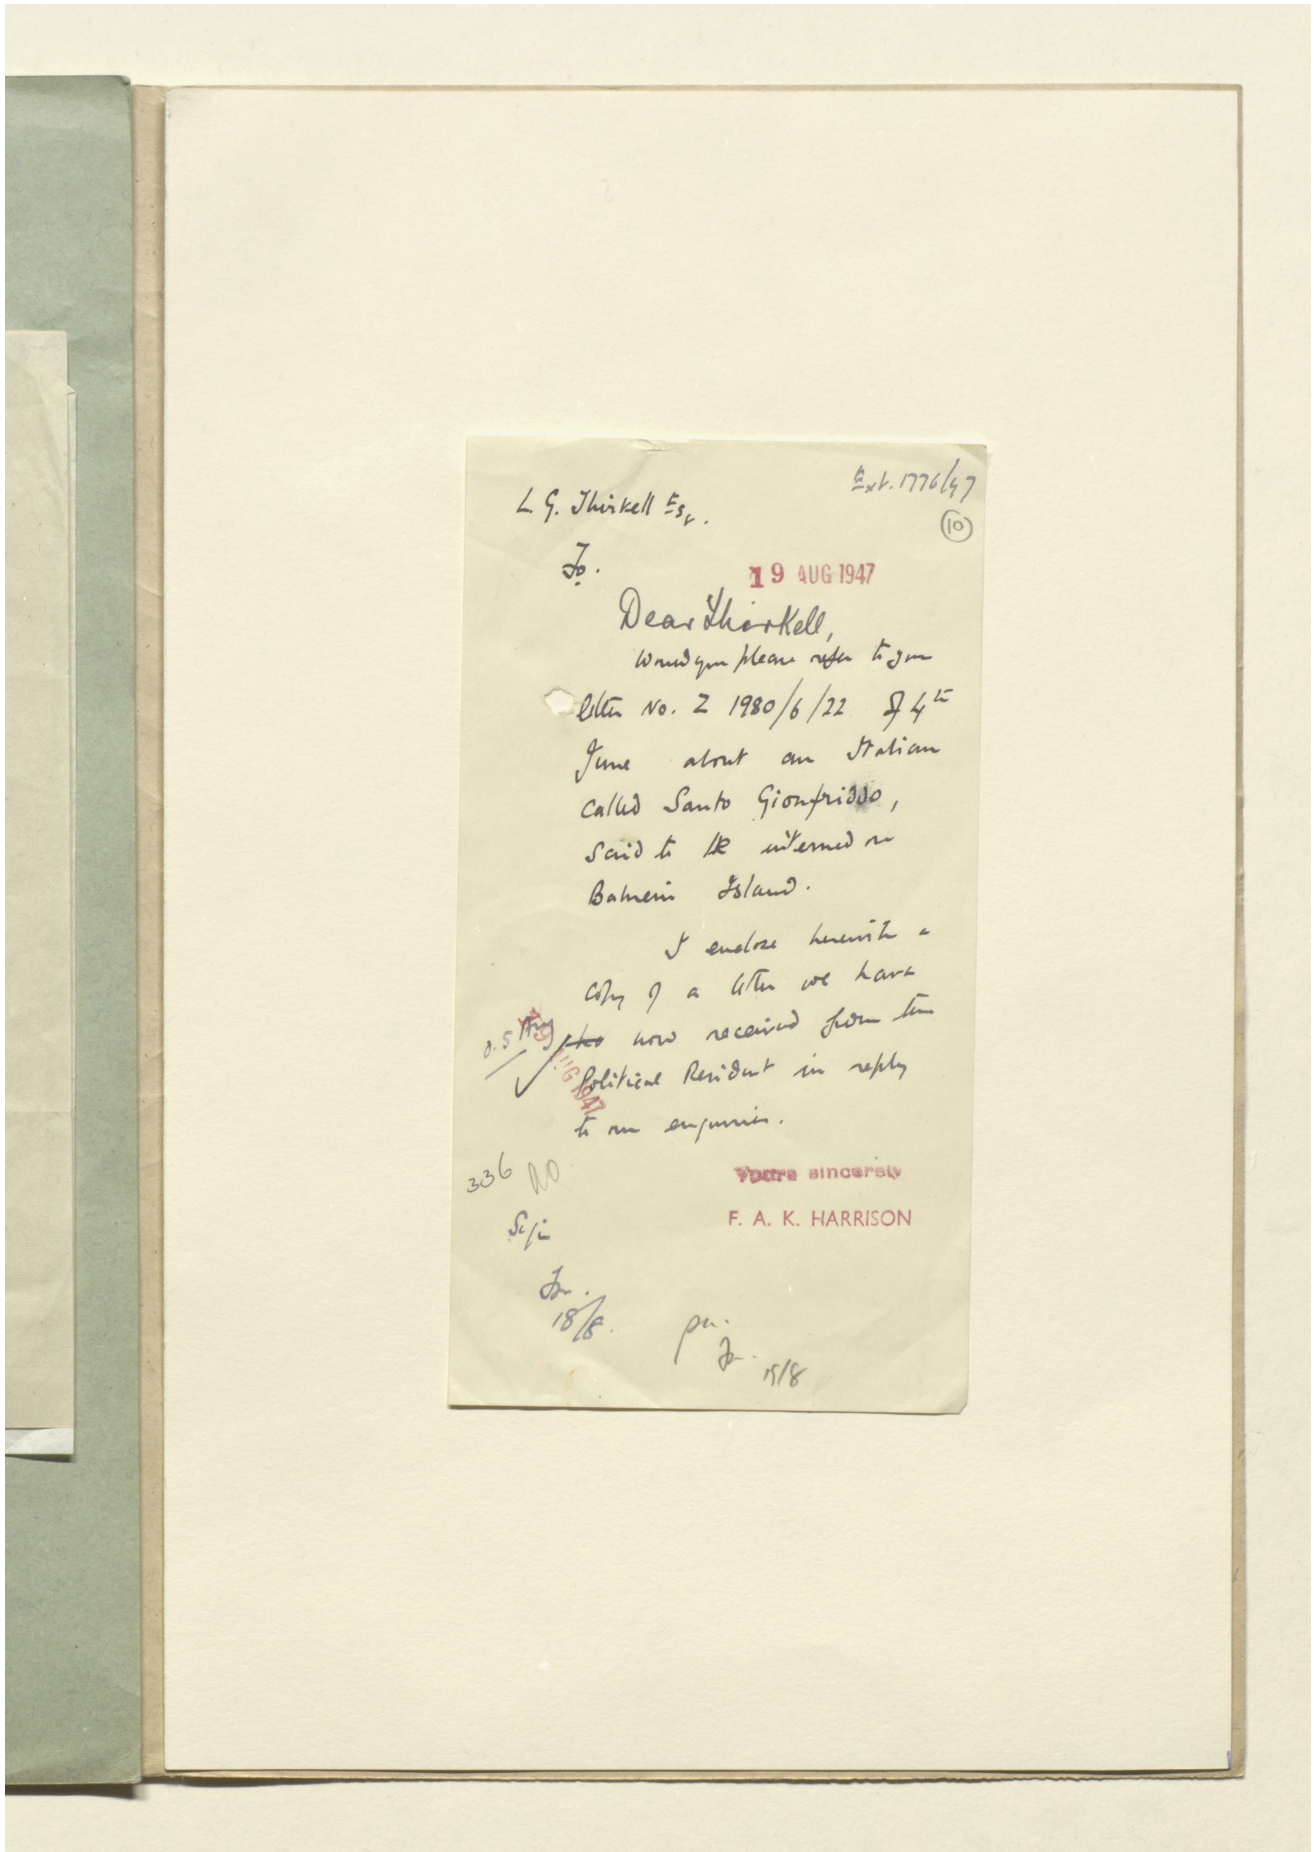 Ext. 1776/47
L. G. Thirkell Esq.
10
F.O.
19 AUG 1947
Dear Thirkell,
Would you please refer to your
letter No. Z 1980/6/22 of 4th
June about an Italian
called Santo Gionfriddo,
said to be interned on
Bahrein Island.
I enclose herewith a
copy of a letter we have
now received from the
o. 5 Aug
19 AUG 1947
Political Resident in reply
to our enquiries.
336
Yours sincerely
F. A. K. HARRISON
18/8.
pa.
19/8